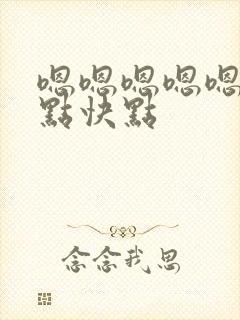 嗯嗯嗯嗯嗯
點快點
念念我思